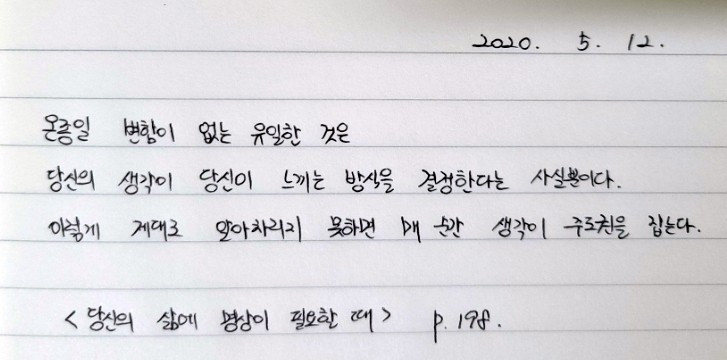 2020. 5. 12.
온종일 변함이 없는 유일한 것은
당신의 생각이 당신이 느끼는 방식을 결정한다는 사실뿐이다.
이렇게 제대로 알아차리지 못하면 매 순간 생각이 주도권을 잡는다.
<당신의 삶에 명상이 필요할 때> p.198.